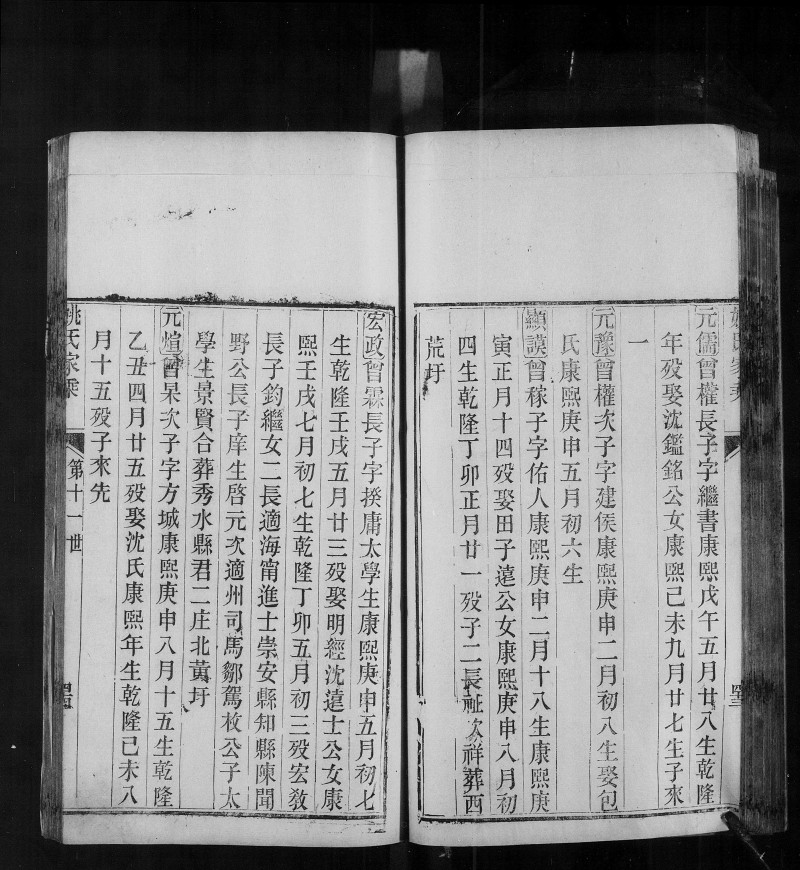 元儒曾權長子字繼書康熙戊午五月廿八生乾隆
年歿娶沈鑑銘公女康熙己未九月廿七生子來
一
元豫曾權次子字建侯康熙庚申二月初八生娶包
氏康熙庚申五月初六生
顯謨曾稼子字佑人康熙庚申二月十八生康熙庚
寅正月十四歿娶田子遠公女康熙庚申八月初
四生乾隆丁卯正月廿一歿子二長祉次祥葬西
荒圩
宏政曾霖長子字揆庸太學生康熙庚申五月初七
生乾隆壬戌五月廿三歿娶明經沈遠士公女康
熙壬戌七月初七生乾隆丁卯五月初三歿宏敎
長子鈞繼女二長適海甯進士崇安縣知縣陳聞
野公長子庠生啓元次適州司馬鄒駕枚公子太
學生景賢合葬秀水縣君二庄北黃圩
元愃曾杲次子字方城康熙庚申八月十五生乾隆
乙丑四月廿五歿娶沈氏康熙年生乾隆己未八
月十五歿子來先
姚氏家乘
第十一世